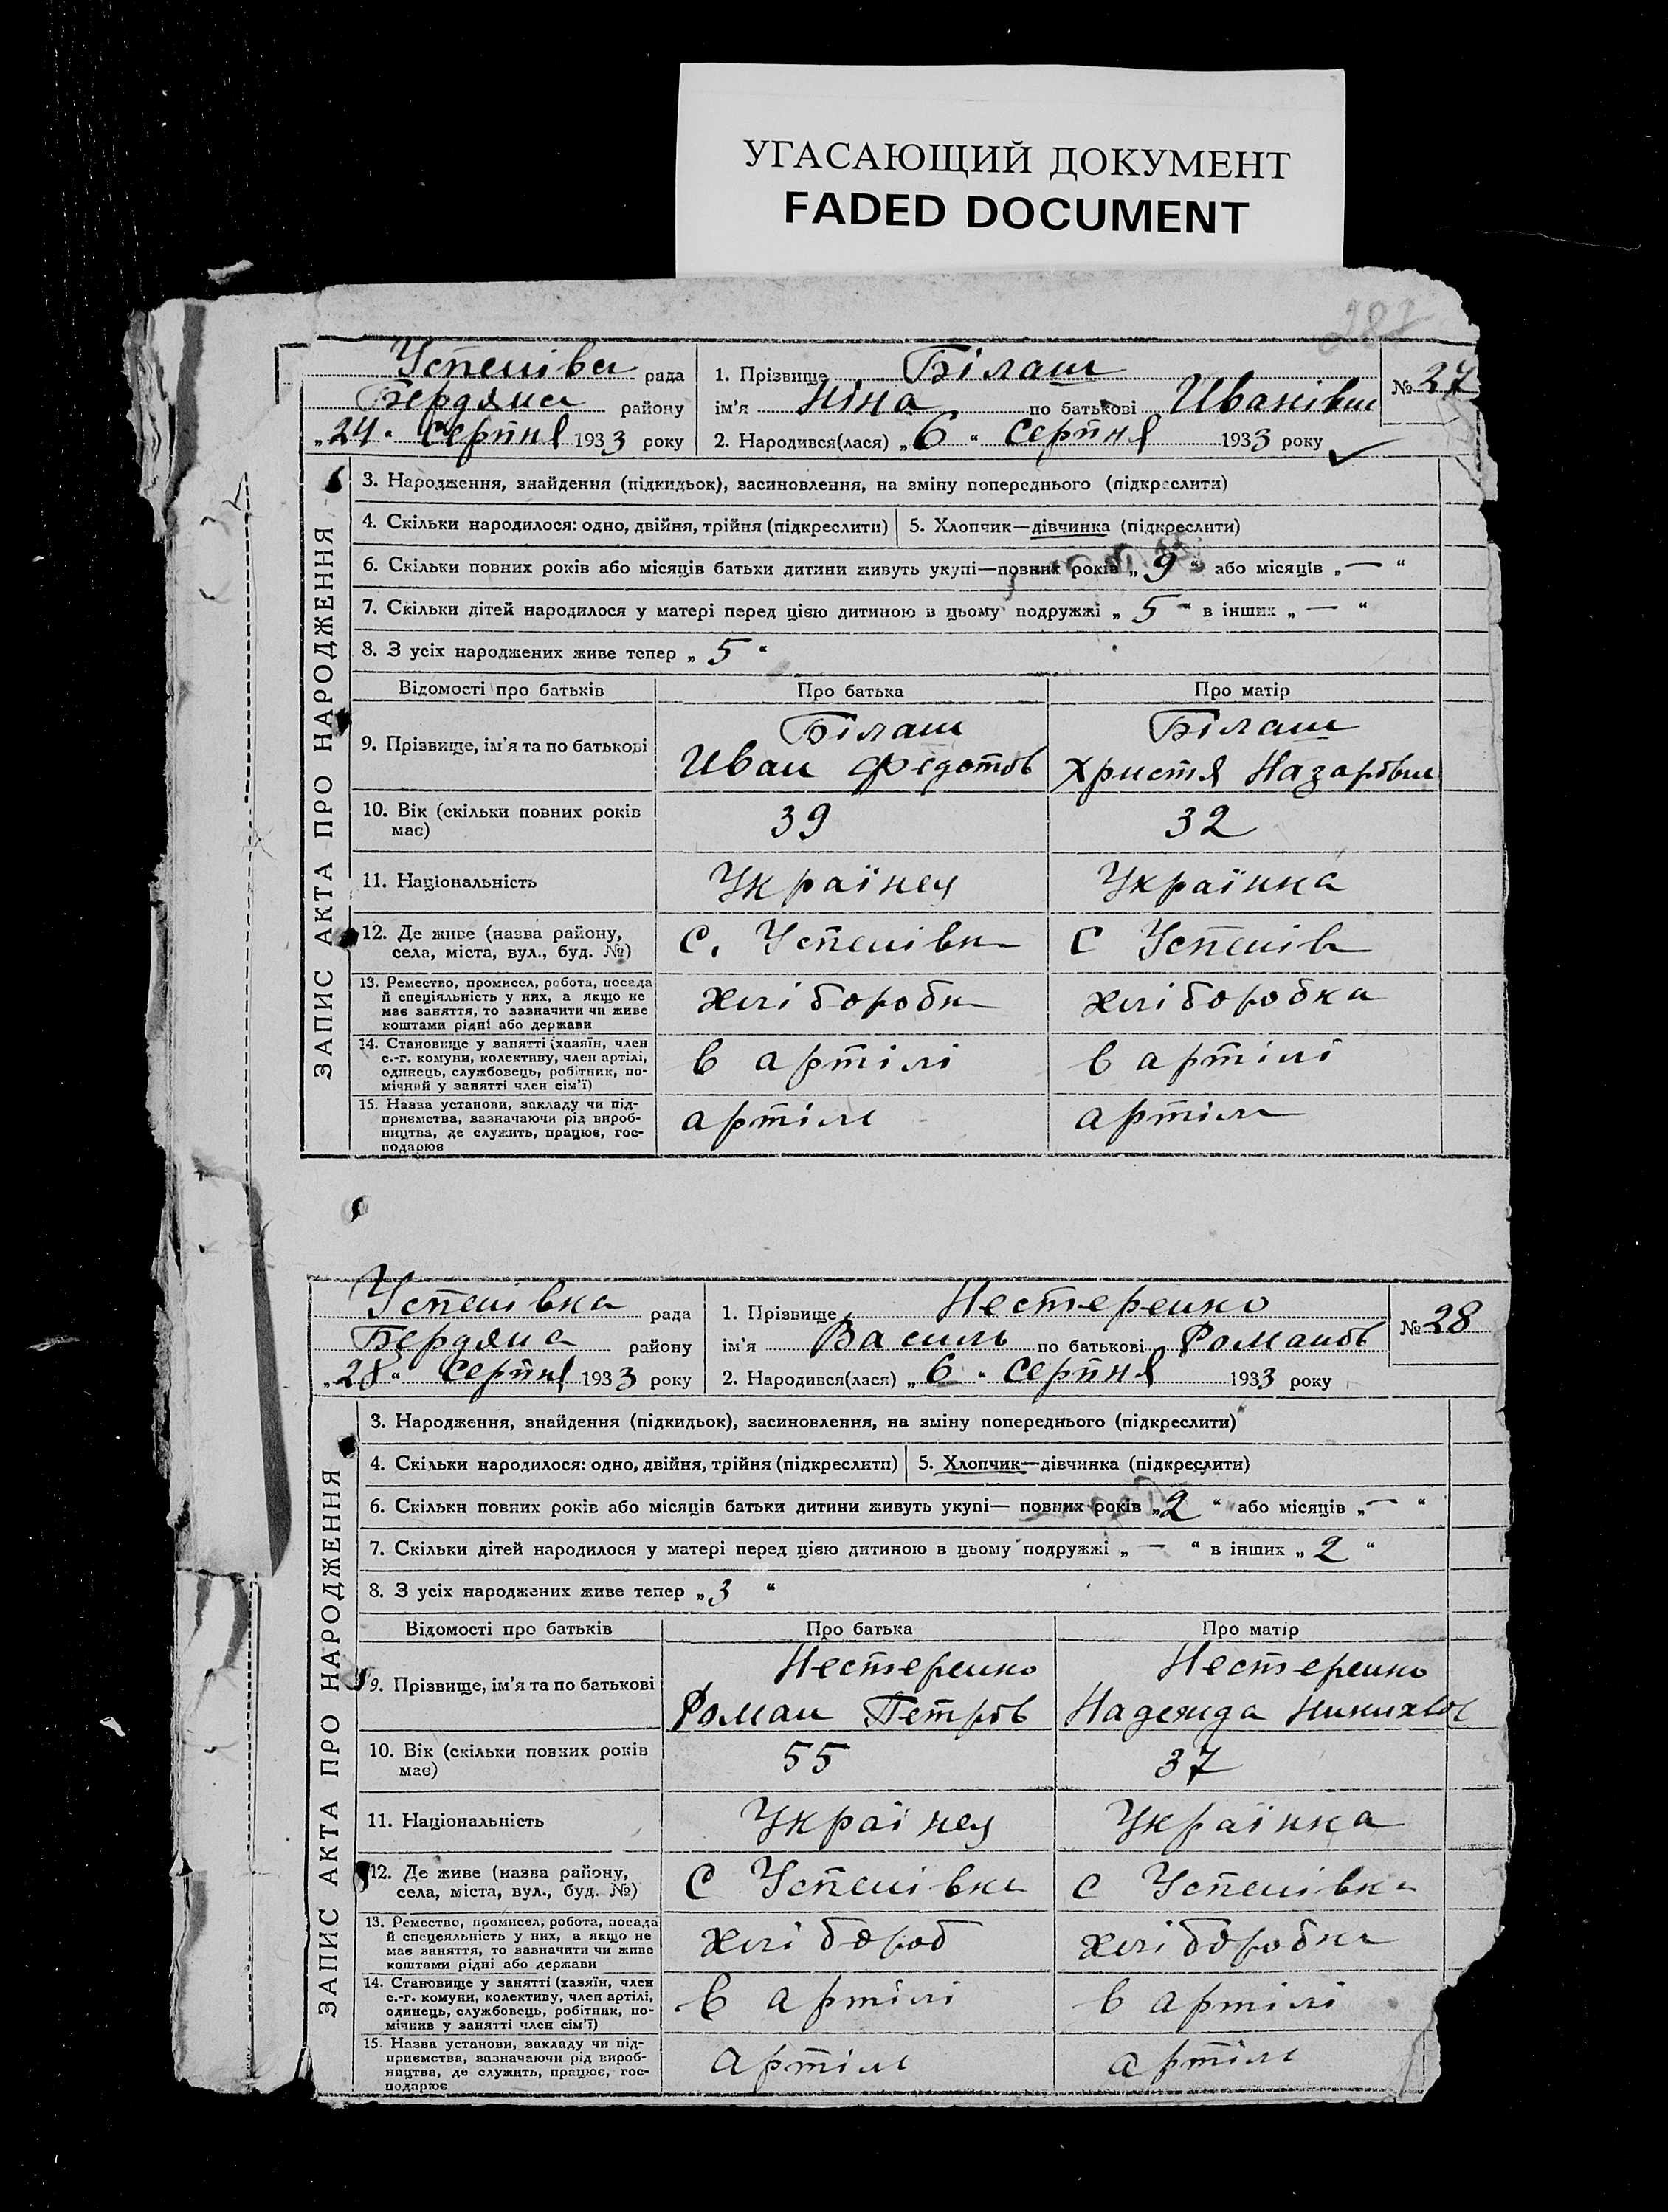 УГАСАЮЩИЙ ДОКУМЕНТ
FADED DOCUMENT
287
Успенівка рада
Бердянс району
„24“ Серпня 1933 року
1. Прізвище Білаш
ім'я Ніна по батькові Иванівни
2. Народився(лася) „6“ Серпня 1933 року
№ 27
ЗАПИС АКТА ПРО НАРОДЖЕННЯ
3. Народження, знайдення (підкидьок), васиновлення, на зміну попереднього (підкреслити)
4. Скільки народилося: одно, двійня, трійня (підкреслити) 5. Хлопчик—дівчинка (підкреслити)
6. Скільки повних років або місяців батьки дитини живуть укупі—повних років „9“ або місяців „—“
7. Скільки дітей народилося у матері перед цією дитиною в цьому подружжі „5“ в інших „—“
8. З усіх народжених живе тепер „5“
Відомості про батьків Про батька Про матір
9. Прізвище, ім'я та по батькові
Білаш Білаш
Иван Федотов Христя Назарівни
10. Вік (скільки повних років має) 39 32
11. Національність Українец Українка
12. Де живе (назва району, села, міста, вул., буд. №) С. Успенівка С Успенів
13. Ремество, промисел, робота, посада
й спеціяльність у них, а якщо не
має заняття, то зазначити чи живе
коштами рідні або держави
хлібороби хліборобка
14. Становище у занятті (хазяїн, член
с.-г. комуни, колективу, член артілі,
одинець, службовець, робітник, по-
мічний у занятті член сім'ї)
в артілі в артілі
15. Назва установи, закладу чи під-
приємства, зазначаючи рід вироб-
ництва, де служить, працює, гос-
подарює
артіль артіль
Успенівка рада
Бердянс району
„28“ Серпня 1933 року
1. Прізвище Нестеренко
ім'я Василь по батькові Романов
2. Народився(лася) „6“ Серпня 1933 року
№ 28
ЗАПИС АКТА ПРО НАРОДЖЕННЯ
3. Народження, знайдення (підкидьок), засиновлення, на зміну попереднього (підкреслити)
4. Скільки народилося: одно, двійня, трійня (підкреслити) 5. Хлопчик—дівчинка (підкреслити)
6. Скільки повних років або місяців батьки дитини живуть укупі— повних років „2“ або місяців „—“
7. Скільки дітей народилося у матері перед цією дитиною в цьому подружжі „—“ в інших „2“
8. З усіх народжених живе тепер „3“
Відомості про батьків Про батька Про матір
9. Прізвище, ім'я та по батькові
Нестеренко Нестеренко
Роман Петров Надежда
10. Вік (скільки повних років має) 55 37
11. Національність Українец Українка
12. Де живе (назва району, села, міста, вул., буд. №) С Успенівка с Успенівка
13. Ремество, промисел, робота, посада
й спецеяльність у них, а якщо не
має заняття, то зазначити чи живе
коштами рідні або держави
хлібороб хліборобка
14. Становище у занятті (хазяїн, член
с.-г. комуни, колективу, член артілі,
одинець, службовець, робітник, по-
мічнив у занятті член сім'ї)
в артілі в артілі
15. Назва установи, закладу чи під-
приємства, вазначаючи рід вироб-
ництва, де служить, працює, гос-
подарює
Артіль артіль